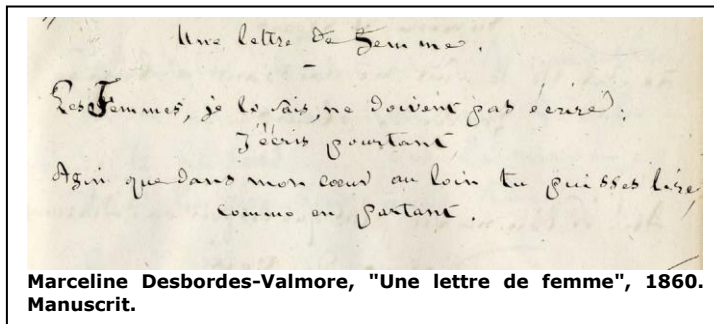 Une lettre de femme.
Les Femmes, je le sais, ne doivent pas écrire ;
J'écris pourtant
Afin que dans mon cœur au loin tu puisses lire,
comme en partant.
Marceline Desbordes-Valmore, "Une lettre de femme", 1860.
Manuscrit.